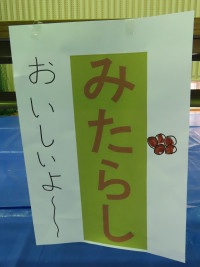 みたらし
おいしいよ〜〜